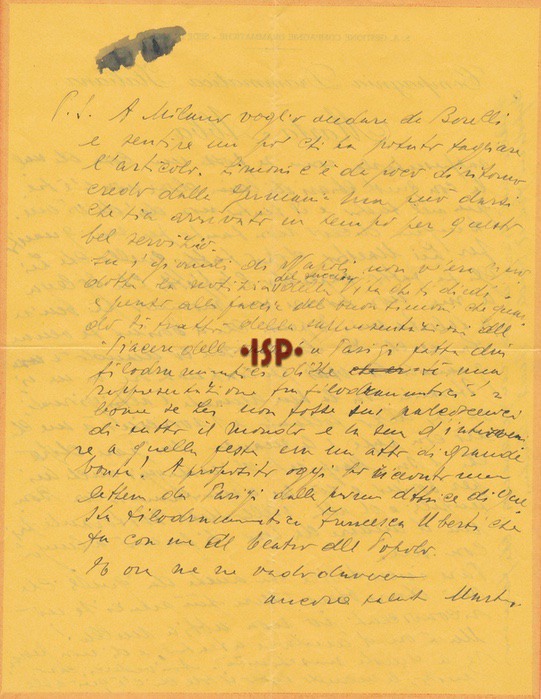 P.S. A Milano voglio andare da Borelli
e sentire un pò chi ha potuto tagliare
l'articolo. Simoni c'è da poco di ritorno
credo dalla Germania ma può darsi
che sia arrivato in tempo per questo
bel servizio.
Su i giornali di Napoli non v'era
la notizia del successo della
alla faccia del buon Simoni che quan
do si tratta della rappresentazione del
"Piacere dell' a Parigi fatta dai
filodrammatici disse una
rappresentazione fra filodrammatici è
buona se Lei non fosse
di tutto il mondo e la sua
re a quella festa era un atto di grande
bontà! A proposito oggi ho ricevuto una
lettera da Parigi dalla prima attrice di
sta filodrammatica Francesca Uberti che
fu con me al Teatro del Popolo.
Ed ora me ne vado davvero
ancora saluti
•ISP•